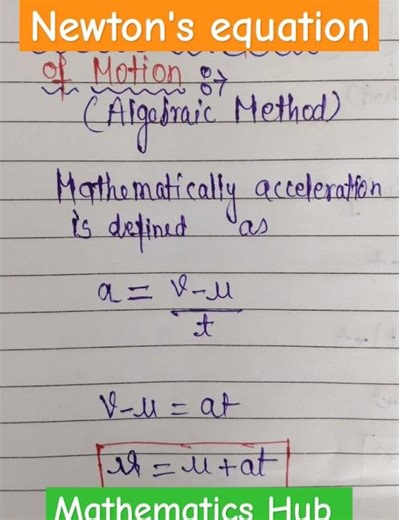 Newton's equation
of Motion :→
(Algebraic Method)
Mathematically acceleration
is defined as
a = v-u
t
v-u = at
v = u + at
Mathematics Hub